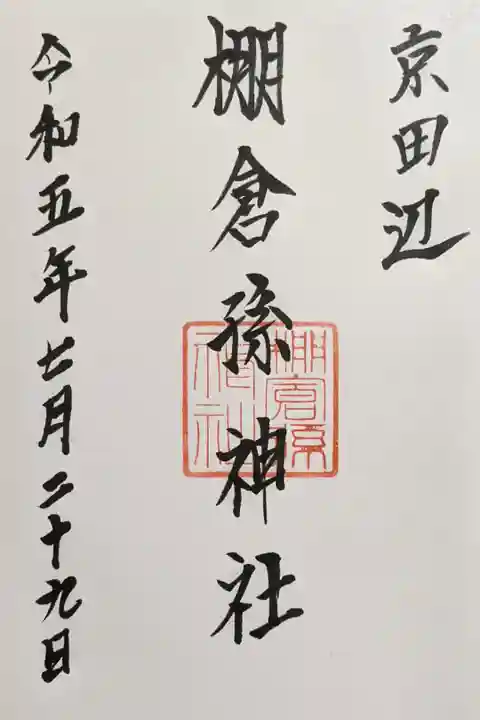 京田辺
棚倉孫神社
令和五年七月二十九日
棚倉孫
神社